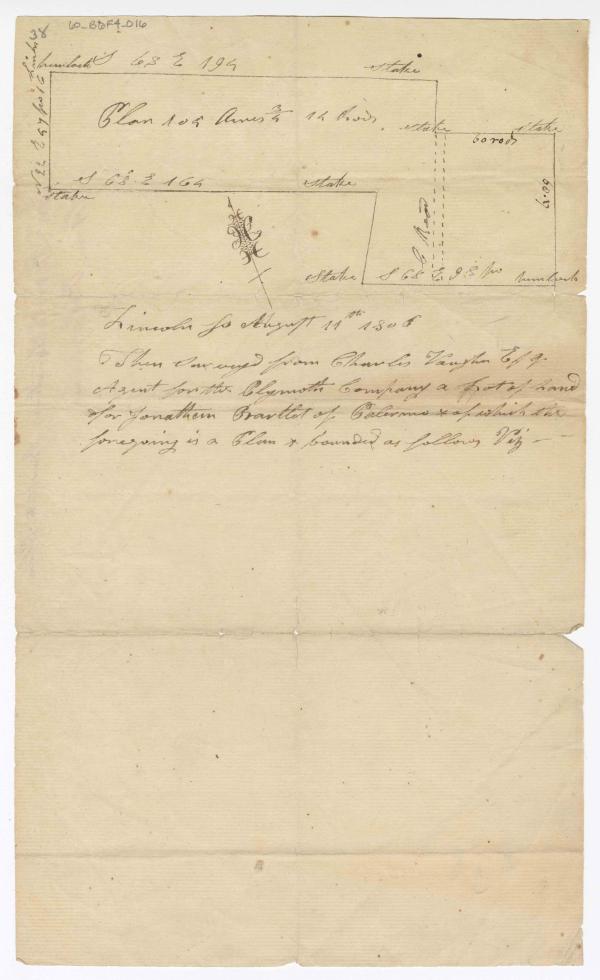 60_B6F4_016
hemlock S 68 E 194 Stake
Links 38
Plan 104 Acres 3/4 14 Rods
Stake Stake
60 rods
S 68 E 164 Stake
Stake
Road
Stake S 68 E hemlock
Lincoln ss August 11th 1806
Then Surveyed from Charles Vaughn Esqr.
Agent for the Plymoth Company a Lot of Land
for Jonathan Bartlet of Palermo & of which the
foregoing is a Plan & bounded as follows Viz